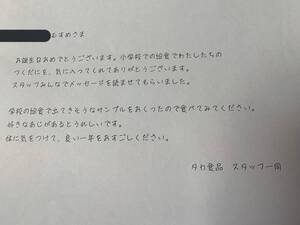 むすめさま
お誕生日おめでとうございます。小学校での給食でわたしたちの
つくだにを、気に入ってくれてありがとうございます。
スタッフみんなでメッセージを読ませてもらいました。
学校の給食で出てきそうなサンプルをおくったので食べてみてください。
好きなあじがあるとうれしいです。
体に気をつけて、良い一年をおすごしください。
タカ食品 スタッフ一同